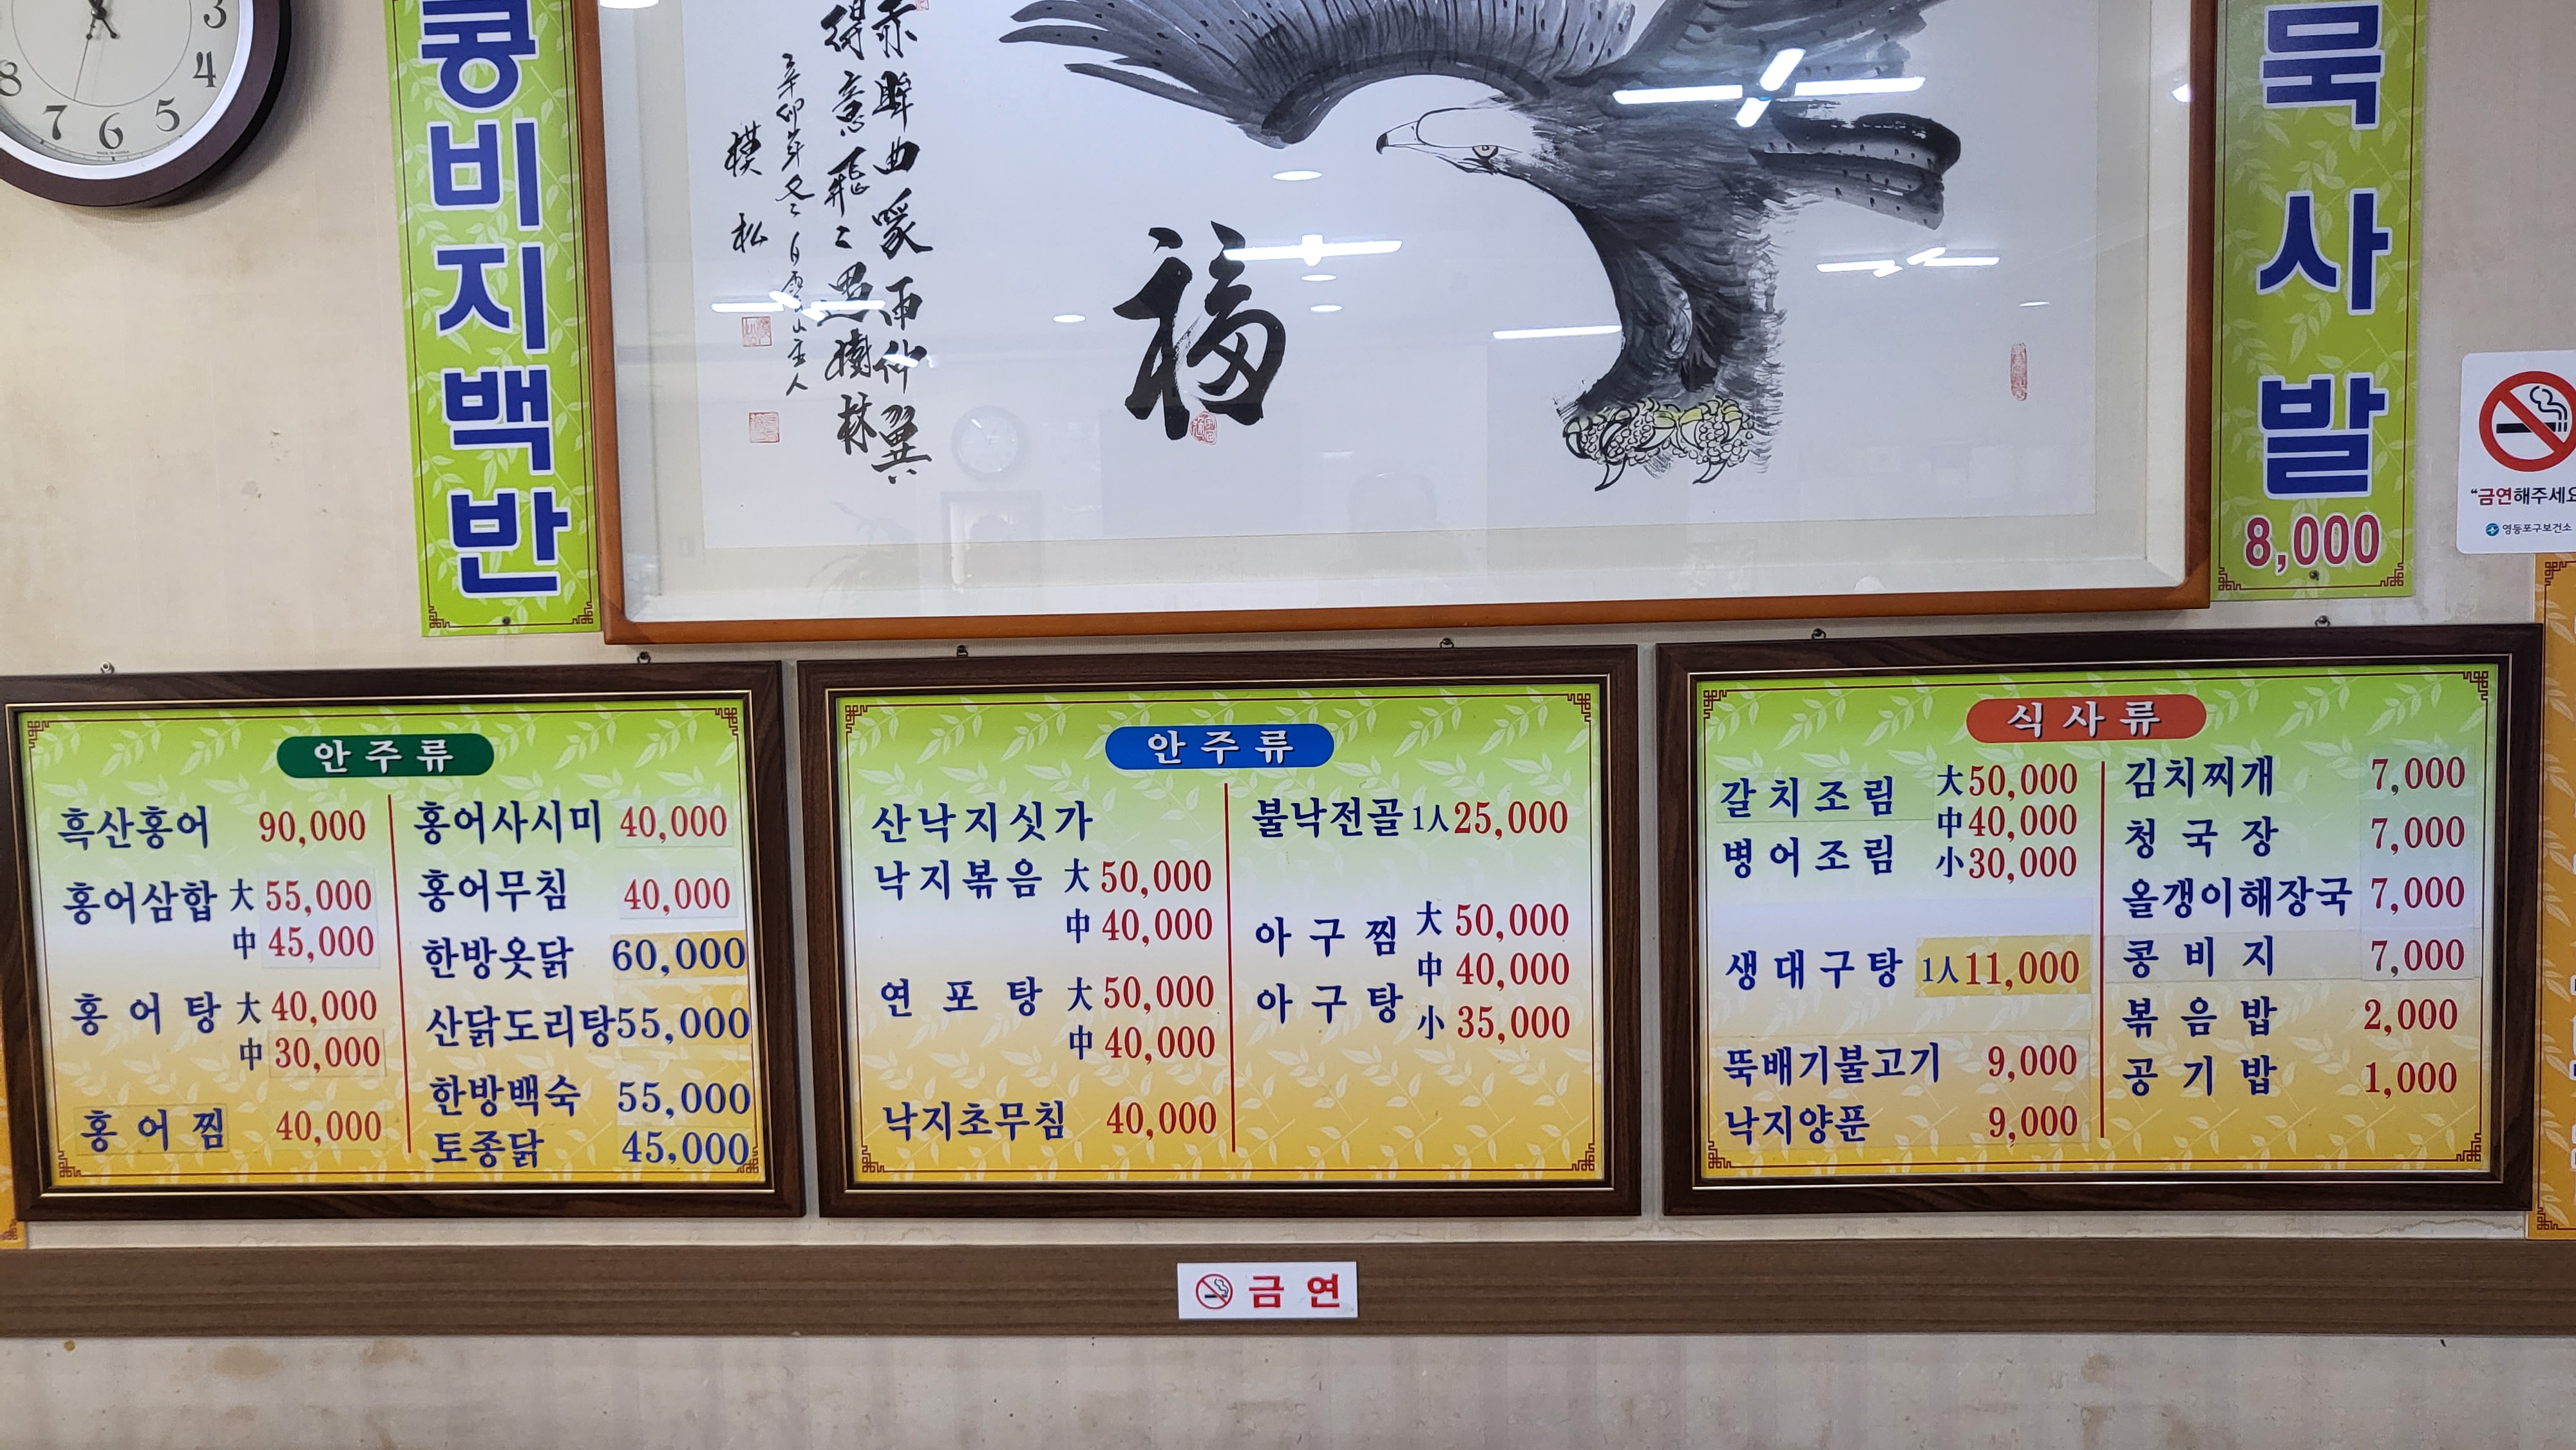 3
4
5
6
7
8
콩비지백반
赤眸曲喙雨仙翼
得意飛飛過樹林
辛卯年冬 白雲山主人
松
福
묵사발
8,000
"금연해주세요
영등포구보건소
안주류
흑산홍어 90,000
홍어삼합 大 55,000
中 45,000
홍어탕 大 40,000
中 30,000
홍어찜 40,000
홍어사시미 40,000
홍어무침 40,000
한방옻닭 60,000
산닭도리탕 55,000
한방백숙 55,000
토종닭 45,000
안주류
산낙지싯가
낙지볶음 大 50,000
中 40,000
연포탕 大 50,000
中 40,000
낙지초무침 40,000
불낙전골 1人 25,000
아구찜 大 50,000
中 40,000
아구탕 小 35,000
식사류
갈치조림 大 50,000
中 40,000
병어조림 小 30,000
생대구탕 1人 11,000
뚝배기불고기 9,000
낙지양푼 9,000
김치찌개 7,000
청국장 7,000
올갱이해장국 7,000
콩비지 7,000
볶음밥 2,000
공기밥 1,000
금연